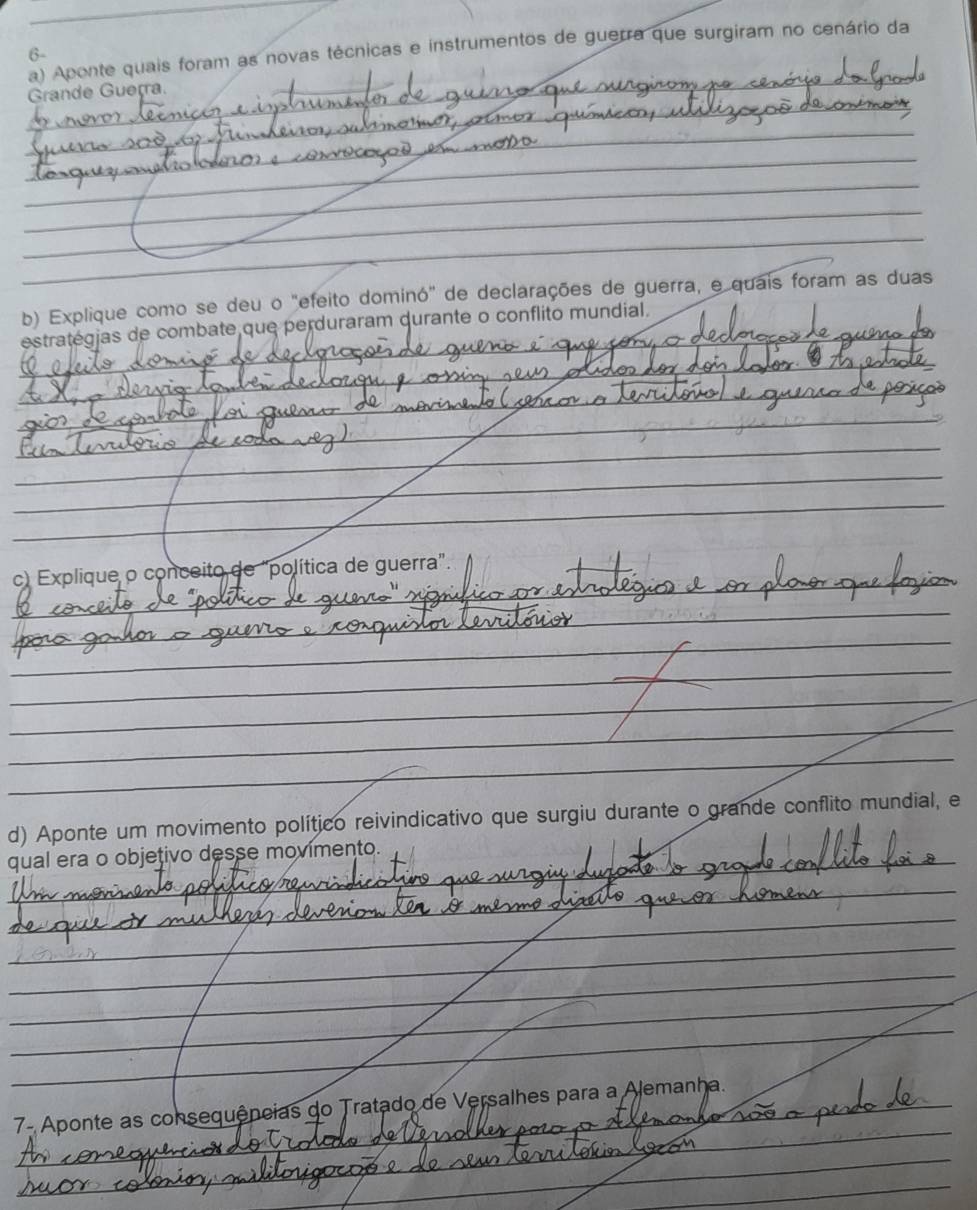 6-
a) Aponte quais foram as novas técnicas e instrumentos de guerra que surgiram no cenário da
Grande Guerra.
As novas técnicas e instrumentos de guerra que surgiram no cenário da Grande
Guerra saõ as trincheiras, submarinos, armas químicas, utilizaçaõ de animais,
tanques, metralhadoras e convocaçaõ em massa
b) Explique como se deu o "efeito dominó" de declarações de guerra, e quais foram as duas
estratégias de combate que perduraram durante o conflito mundial.
O efeito dominó de declaraçoẽs de guerra é que com a declaraçaõ de guerra dos
deveria também declarou e assim seus aliados dos dois lados. As estraté
gias de combate foi guerra de movimento (cercar o territórios) e guerra de posiçaõ
(um território de cada vez).
c) Explique o conceito de "política de guerra".
O conceito de "política de guerra" significa as estratégias e os planos que faziam
para ganhar a guerra e conquistar territórios
d) Aponte um movimento político reivindicativo que surgiu durante o grande conflito mundial, e
qual era o objetivo desse movimento.
Um movimento político reivindicativo que surgiu durante o grande conflito foi o
de que as mulheres deveriam ter o mesmo direito que os homens
7- Aponte as consequências do Tratado de Versalhes para a Alemanha.
As consequências do Tratado de Versalhes para a Alemanha saõ a perda de
suas colonias, militarizaçaõ e de seus territórios